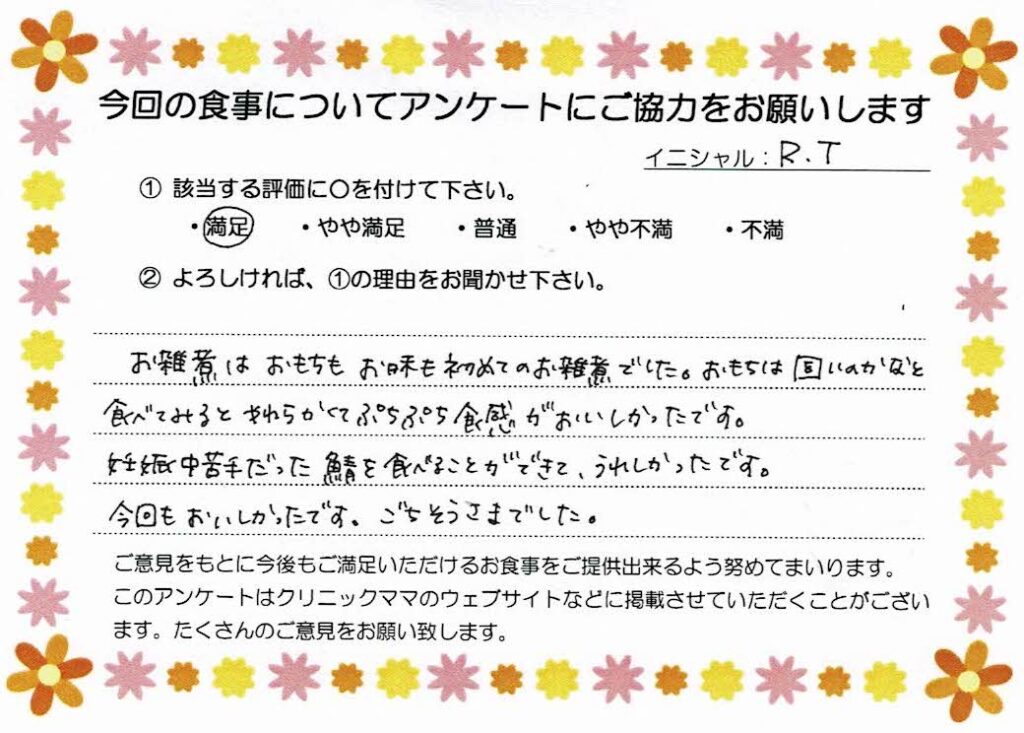 今回の食事についてアンケートにご協力をお願いします
イニシャル：R.T
① 該当する評価に〇を付けて下さい。
・満足 ・やや満足 ・普通 ・やや不満 ・不満
② よろしければ、①の理由をお聞かせ下さい。
お雑煮は おもちも お味も初めてのお雑煮でした。おもちは 固いのかなと
食べてみると やわらかくてぷちぷち食感がおいしかったです。
妊娠中苦手だった鯖を食べることができて、うれしかったです。
今回もおいしかったです。ごちそうさまでした。
ご意見をもとに今後もご満足いただけるお食事をご提供出来るよう努めてまいります。
このアンケートはクリニックママのウェブサイトなどに掲載させていただくことがござい
ます。たくさんのご意見をお願い致します。